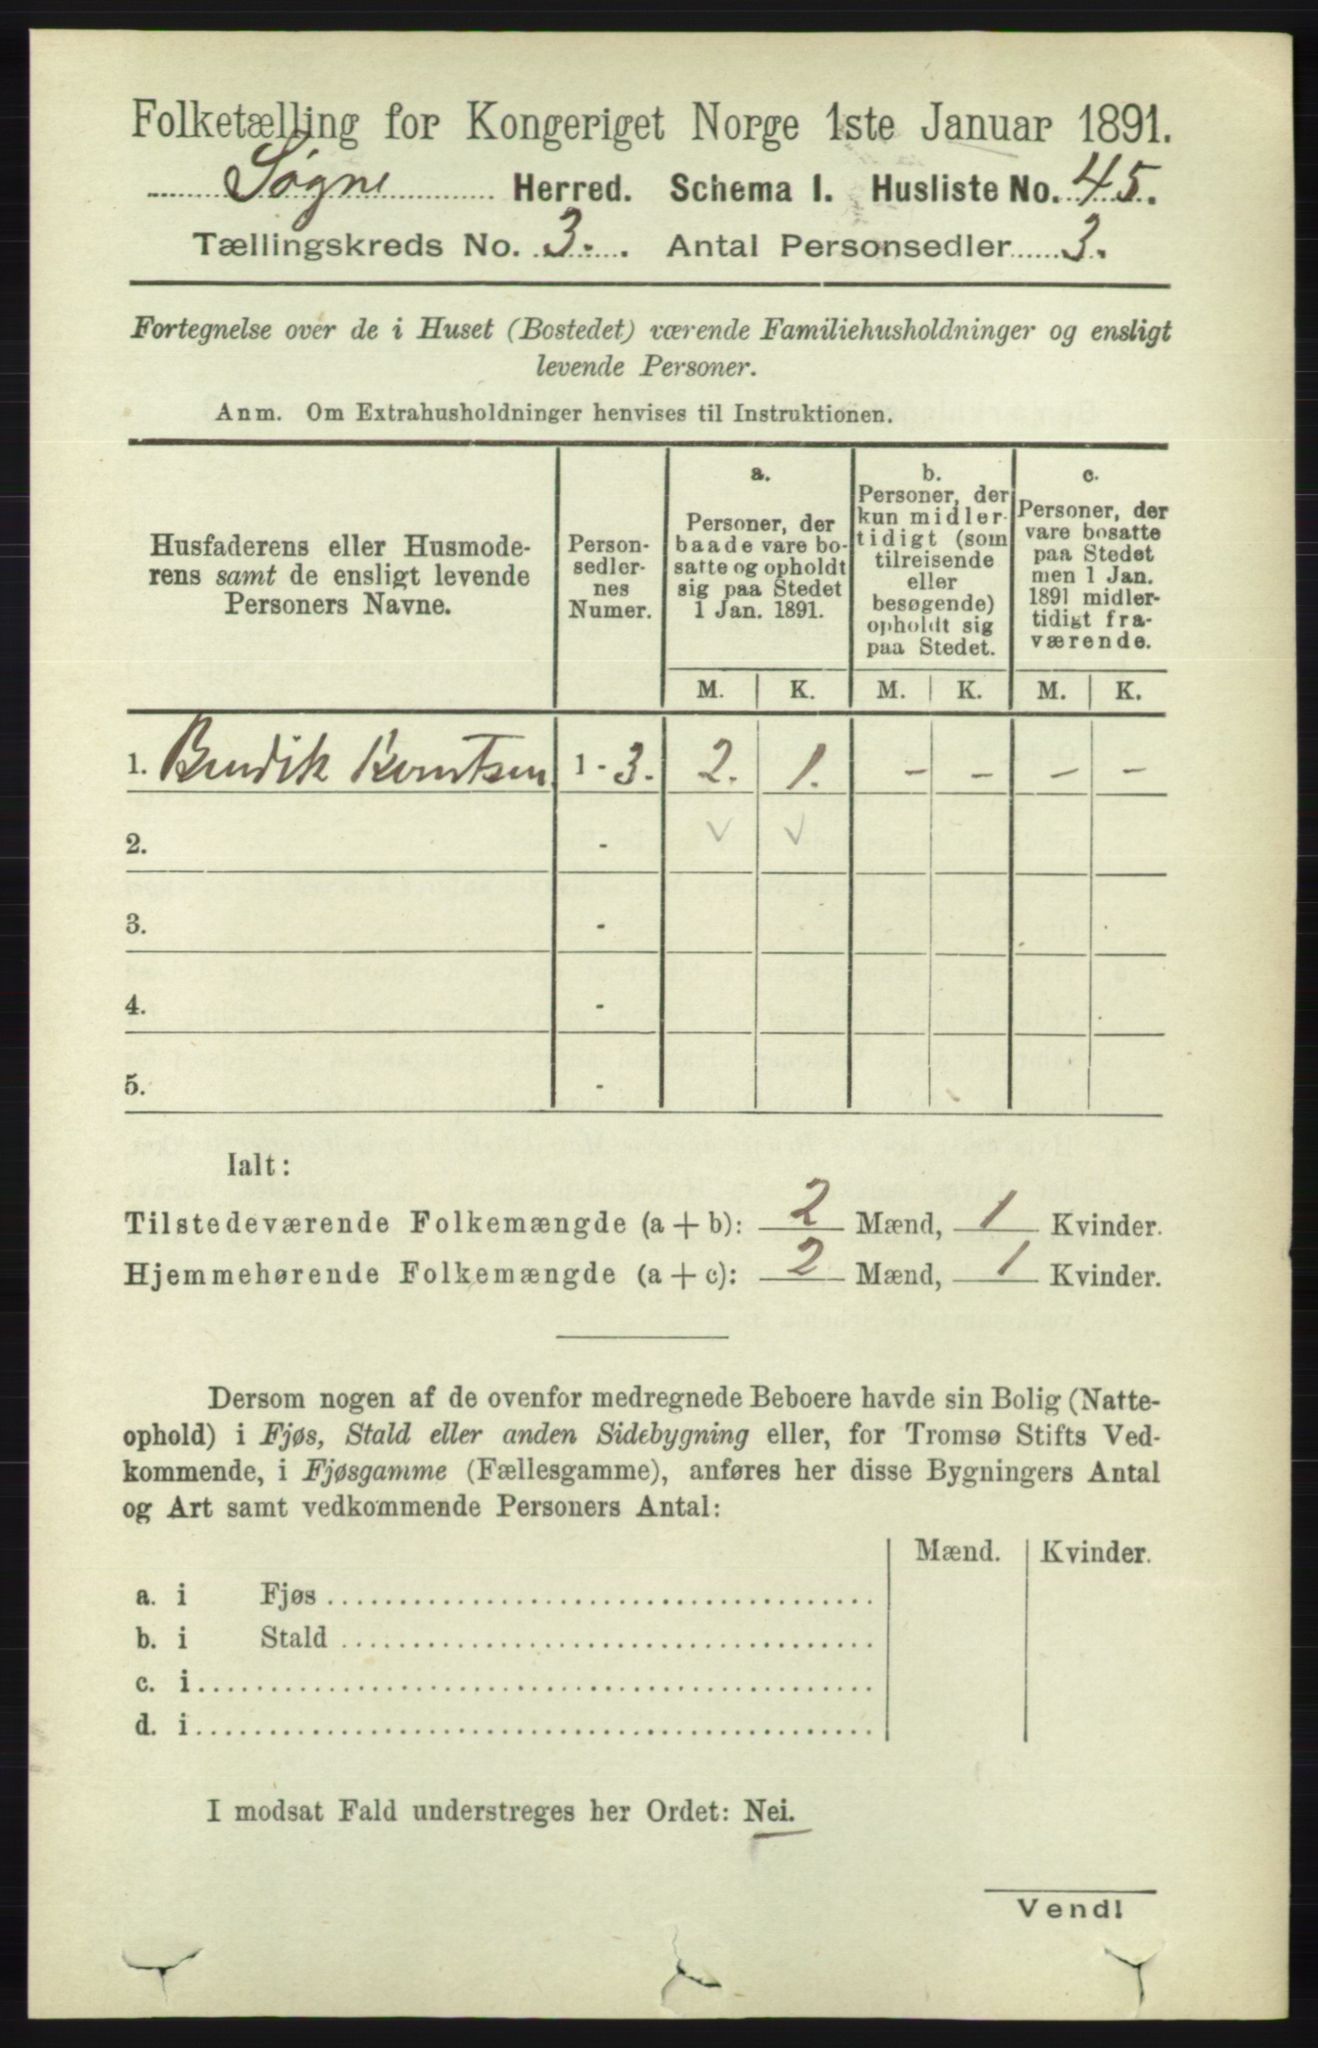 Folketælling for Kongeriget Norge 1ste Januar 1891.
Søgne Herred. Schema I. Husliste No. 45.
Tællingskreds No. 3. Antal Personsedler 3.
Fortegnelse over de i Huset (Bostedet) værende Familiehusholdninger og ensligt
levende Personer.
Anm. Om Extrahusholdninger henvises til Instruktionen.
Husfaderens eller Husmode-
rens samt de ensligt levende
Personers Navne.
Person-
sedler-
nes
Numer.
a.
Personer, der
baade vare bo-
satte og opholdt
sig paa Stedet
1 Jan. 1891.
b.
Personer, der
kun midler-
tidigt (som
tilreisende
eller
besøgende)
opholdt sig
paa Stedet.
c.
Personer, der
vare bosatte
paa Stedet
men 1 Jan.
1891 midler-
tidigt fra-
værende.
M. K. M. K. M. K.
1. Bendik Berntsen 1 - 3. 2. 1. - - - -
2. -
3. -
4. -
5. -
Ialt:
Tilstedeværende Folkemængde (a + b): 2 Mænd, 1 Kvinder.
Hjemmehørende Folkemængde (a + c): 2 Mænd, 1 Kvinder.
Dersom nogen af de ovenfor medregnede Beboere havde sin Bolig (Natte-
ophold) i Fjøs, Stald eller anden Sidebygning eller, for Tromsø Stifts Ved-
kommende, i Fjøsgamme (Fællesgamme), anføres her disse Bygningers Antal
og Art samt vedkommende Personers Antal:
Mænd. Kvinder.
a. i Fjøs
b. i Stald
c. i
d. i
I modsat Fald understreges her Ordet: Nei.
Vend!